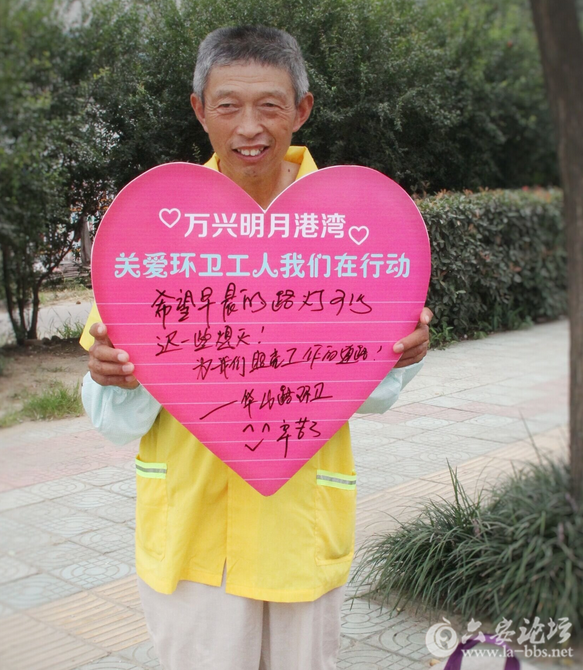 万兴明月港湾
关爱环卫工人我们在行动
希望早晨的路灯可以
迟一些熄灭!
为我们照亮工作的道路!
—华山路环卫
^^ 辛苦了
六安论坛
www.la-bbs.net